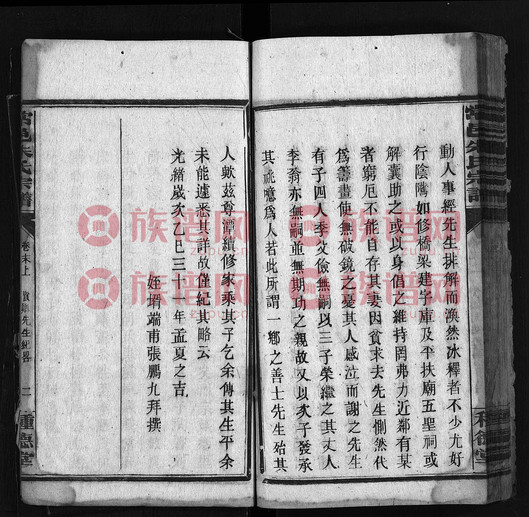 動人事經先生排解而渙然冰釋者不少尤好
行陰隲如修橋梁建字庫及平扶廟五聖祠或
解囊助之或以身倡之維持罔弗力近鄰有某
者窮厄不能自存其妻因貧求去先生惻然代
爲籌畫使無破鏡之憂其人感泣而謝之先生
有子四人李文儉無嗣以三子榮繼之其丈人
李蒶亦無嗣並無期功之親故又以次子發承
其祧噫爲人若此所謂一鄉之善士先生殆其
人歟茲尊潭續修家乘其子乞余傳其生平余
未能遽悉其詳故僅紀其略云
光緒歲次乙巳三十一年孟夏之吉
姪壻端甫張鵬九拜撰
卷末上
先生紀畧
二
種德堂
族谱网